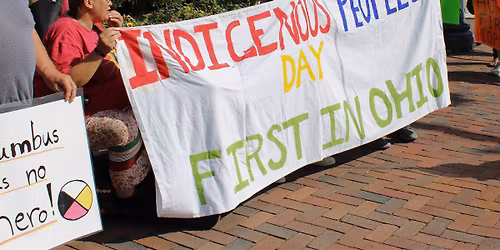 INDIGENOUS PEOPLES
DAY
FIRST IN OHIO
umbus
s no
hero!